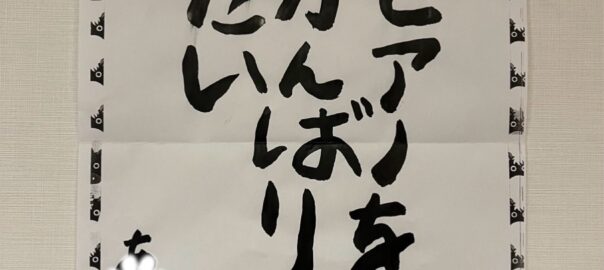 ピアノを
がんばり
たい
ち